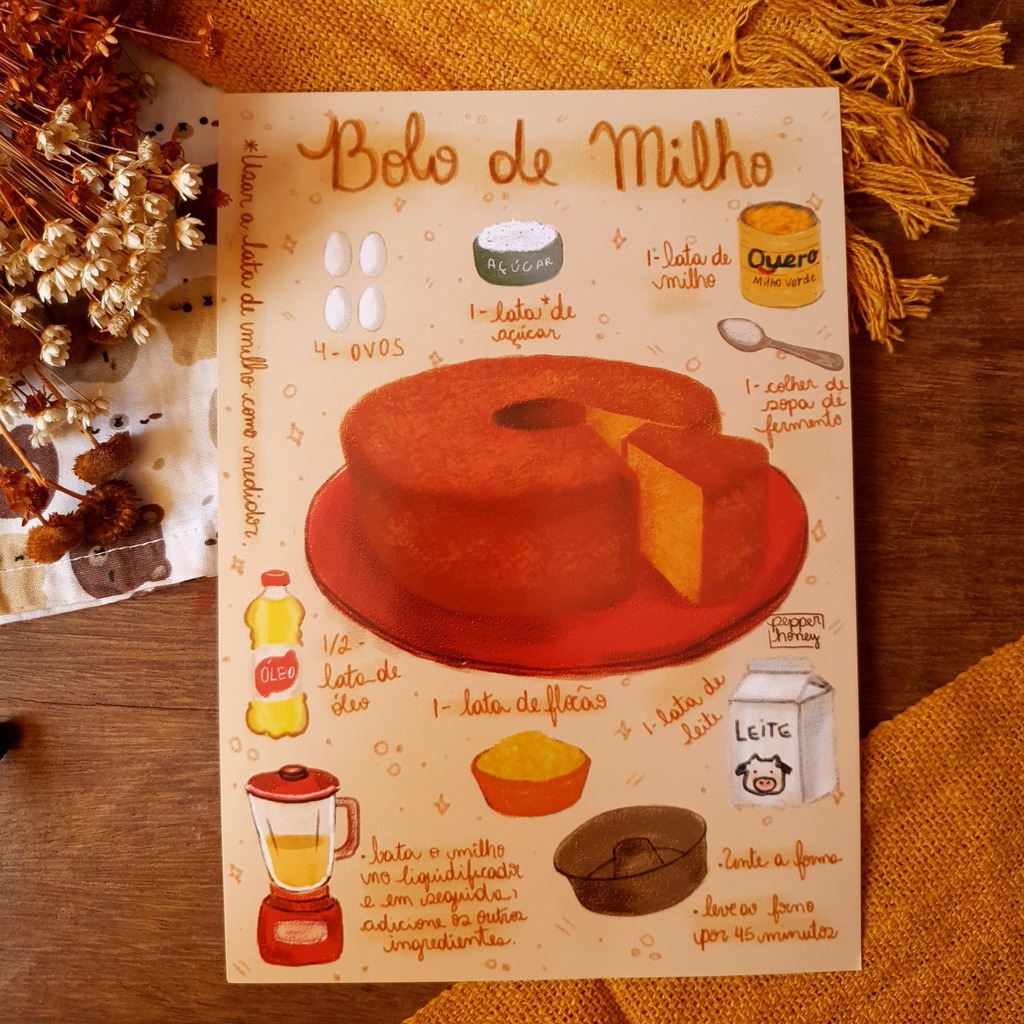 Bolo de Milho
*Usar a lata de milho como medidor.
4 - OVOS
AÇÚCAR
1- lata* de
açúcar
1- lata de
milho
Quero
Milho Verde
1- colher de
sopa de
fermento
pepper
honey
ÓLEO
1/2 -
lata de
óleo
1- lata de flocão
1- lata de
leite
LEITE
• bata o milho
no liquidificador
e em seguida,
adicione os outros
ingredientes.
• Unte a forma
• leve ao forno
por 45 minutos